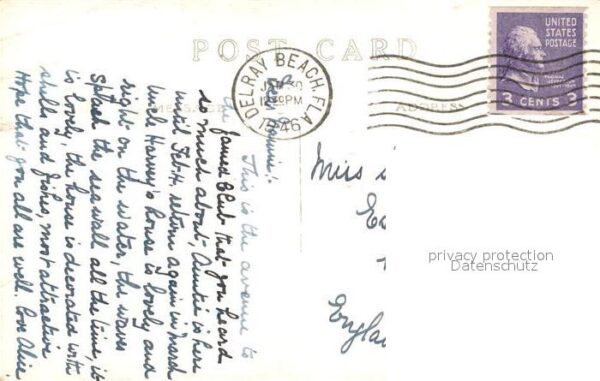 POST CARD
MESSAGE
ADDRESS
DELRAY BEACH, FLA.
12 PM
1946
UNITED STATES POSTAGE
3 CENTS 3
This is the avenue to
the famed Club that you heard
so much about, Auntie is here
until Feb 14, return again in March
until Harvey's house is lovely and
right on the water, the waves
splash the sea wall all the time, it
is lovely, the house is decorated with
shells and fishes, most attractive
Hope that you all are well. Love Alice
Miss
privacy protection
Datenschutz